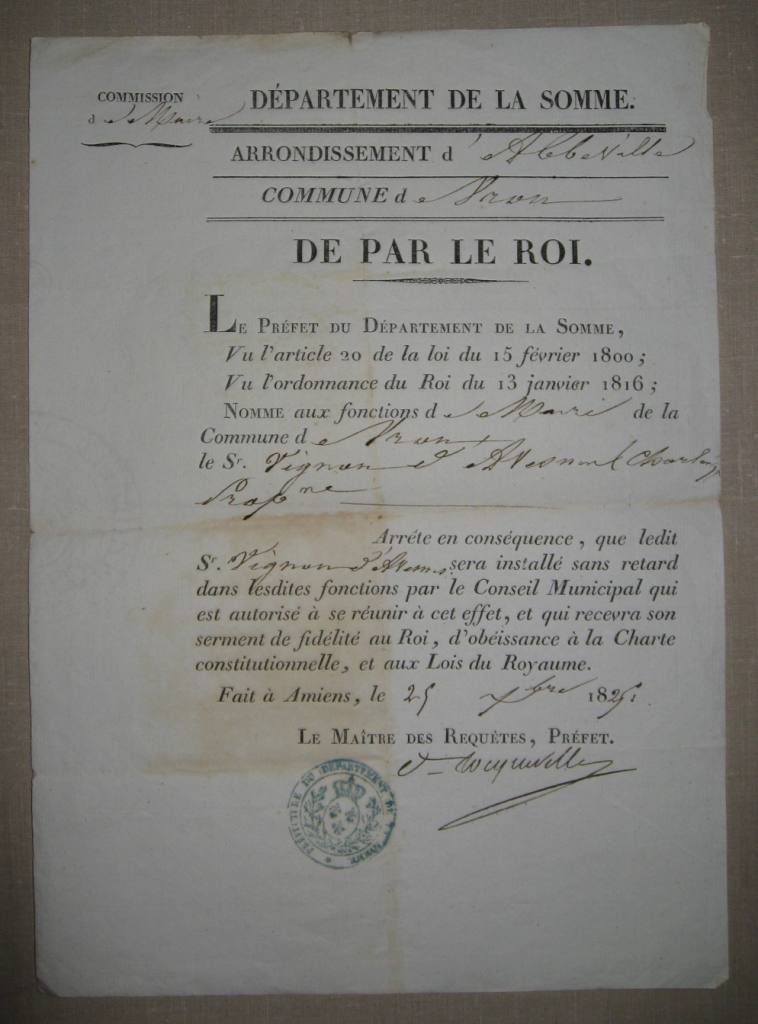 COMMISSION
d e Maire
DÉPARTEMENT DE LA SOMME.
ARRONDISSEMENT d' Abbeville
COMMUNE d e Vron
DE PAR LE ROI.
LE PRÉFET DU DÉPARTEMENT DE LA SOMME,
Vu l'article 20 de la loi du 15 février 1800;
Vu l'ordonnance du Roi du 13 janvier 1816;
NOMME aux fonctions d e Maire de la
Commune d e Vron
le Sr. Vignon d'Avesnes
Arrête en conséquence, que ledit
Sr. Vignon d'Avesnes sera installé sans retard
dans lesdites fonctions par le Conseil Municipal qui
est autorisé à se réunir à cet effet, et qui recevra son
serment de fidélité au Roi, d'obéissance à la Charte
constitutionnelle, et aux Lois du Royaume.
Fait à Amiens, le 25 bre 182
LE MAÎTRE DES REQUÊTES, PRÉFET.
de Tocqueville
PRÉFECTURE DU DÉPARTEMENT DE LA SOMME